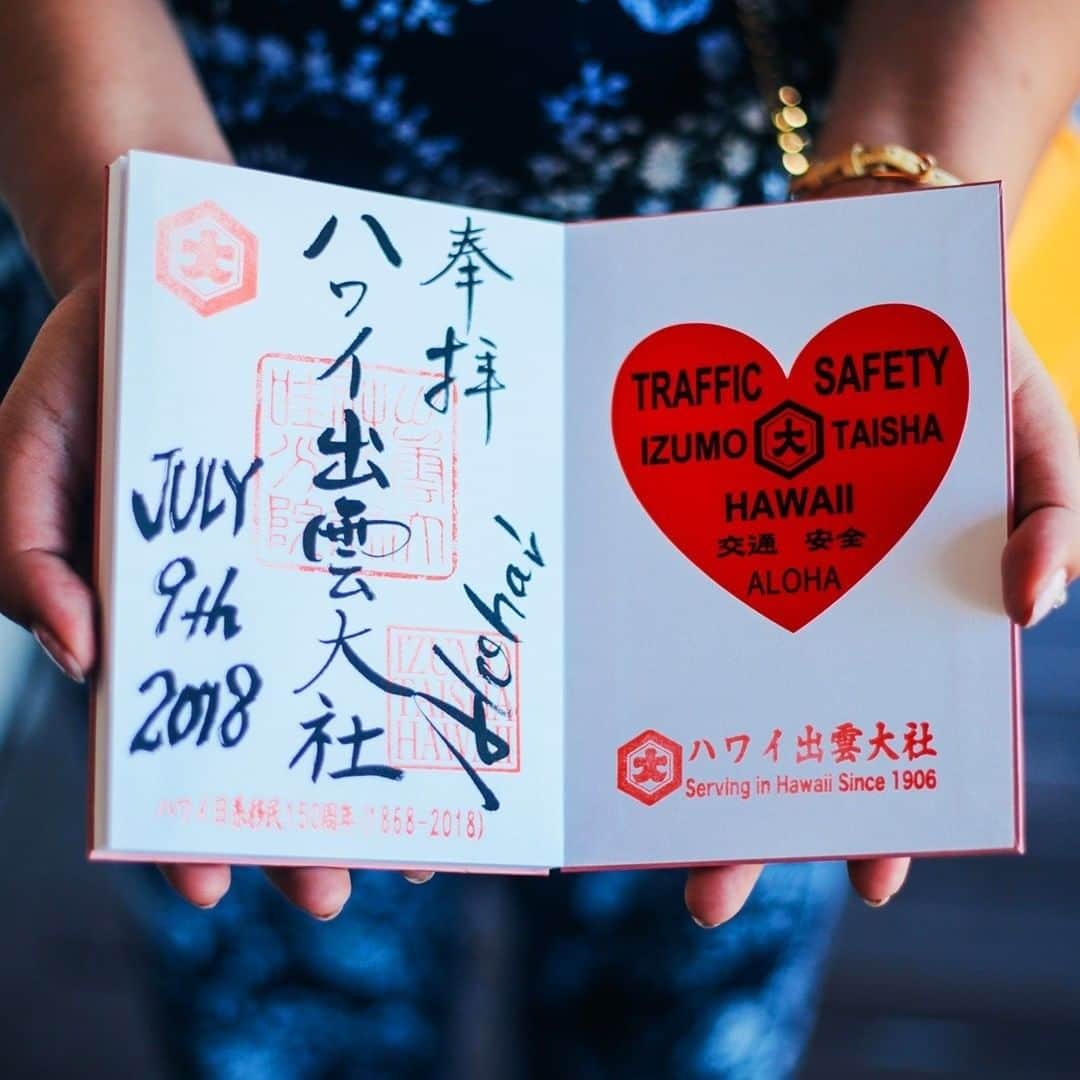 大
奉拝
ハワイ出雲大社
Aloha!
JULY
9th
2018
IZUMO
TAISHA
HAWAII
ハワイ日系移民150周年(1868-2018)
TRAFFIC SAFETY
IZUMO 大 TAISHA
HAWAII
交通 安全
ALOHA
大 ハワイ出雲大社
Serving in Hawaii Since 1906